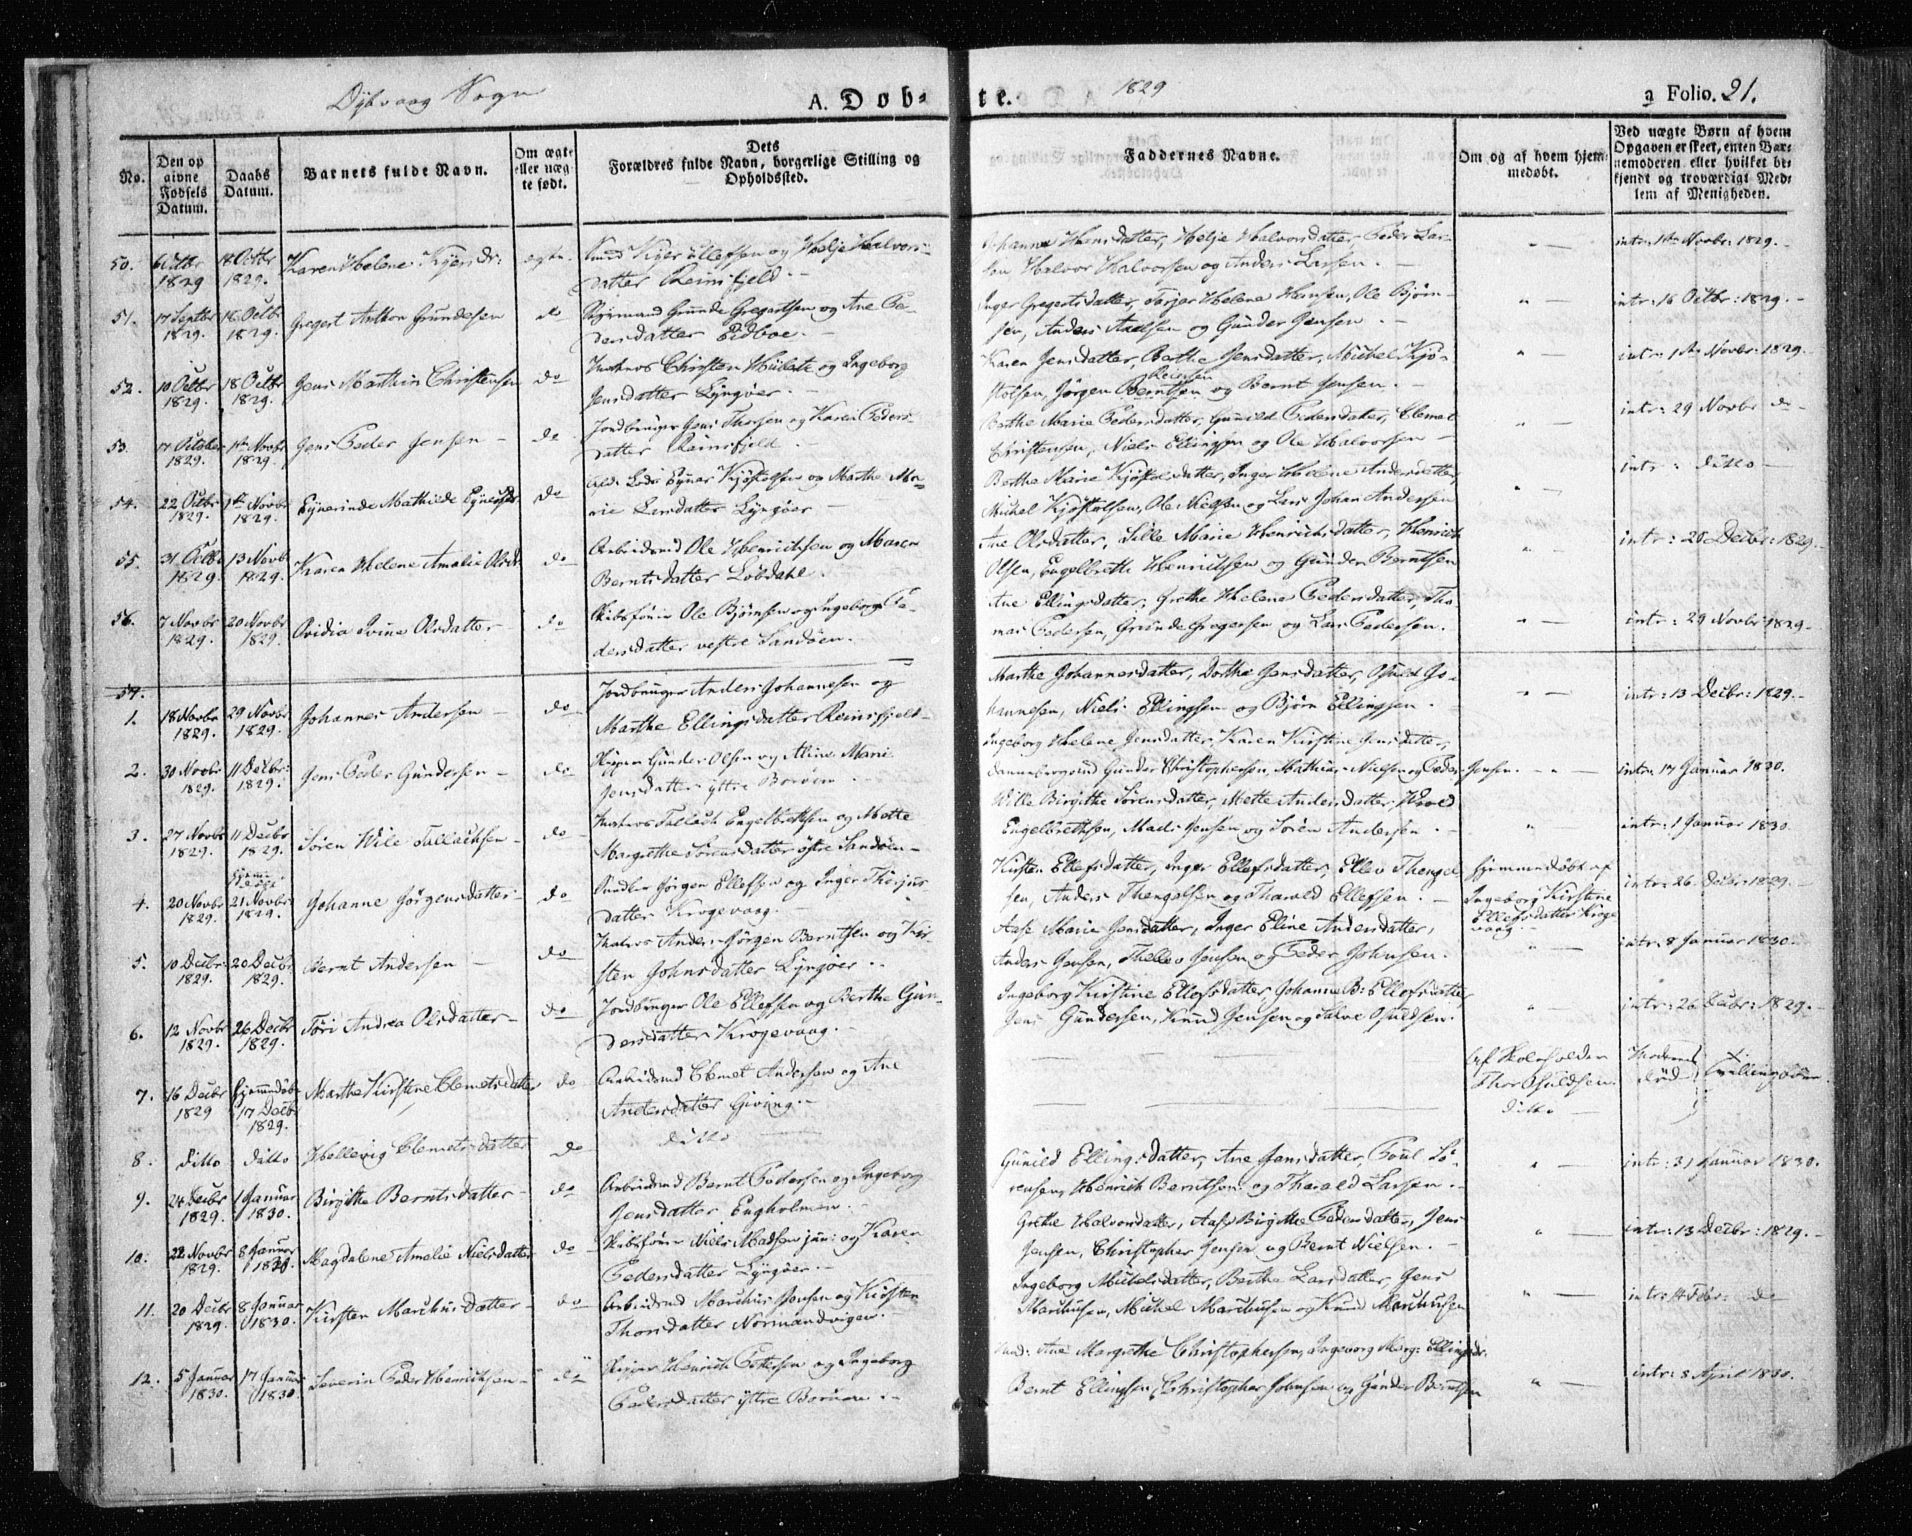 Dybvaag Sogn
A. Døbte. 1829
a Folio. 21.
No.
Den op aivne Fødsels Datum.
Daabs Datum.
Barnets fulde Navn.
Om ægte eller uægte født.
Dets Forældres fulde Navn, borgerlige Stilling og Opholdssted.
Faddernes Navne.
Om og af hvem hjemmedøbt.
Ved uægte Børn af hvem Opgaven er skeet, enten Barnemoderen eller hvilket bekjendt og troværdigt Medlem af Menigheden.
50. 6 Octbr 1829 18 Octbr 1829. Karen Helene Kjersdr: ægte. Knud Kjer Ellefsen og Helje Halvors-
datter Reinsfjeld. -
Johanna Hansdatter, Helje Halvorsdatter, Peder Lar-
sen Halvor Halvorsen og Anders Larsen. - intr: 1ste Novbr: 1829. -
51. 17 Septbr 1829. 18 Octbr 1829. Gregert Anthon Grundesen do Grunde Gregertsen og Ane Pe-
dersdatter Eidboe. -
Inger Gregertsdatter, Helene Hansen, Ole Bjørn-
sen, Anders Axelsen og Gunder Jensen - intr: 16 Octbr: 1829. -
52. 10 Octbr 1829. 18 Octbr 1829. Jens Mathias Christensen do Christen og Ingeborg
Jensdatter Lyngøer. -
Karen Jensdatter, Berthe Jensdatter, Michel Kjø-
stolsen, Jørgen Berntsen og Bernt Jensen. - intr: 1ste Novbr: 1829.
53. 17 October 1829. 1ste Novbr 1829. Jens Peder Jensen - do Jordbruger Jens Thorsen og Karen Peders-
datter Reinsfjeld -
Berthe Marie Pedersdatter, Gunild Pedersdatter, Clemet
Christensen, Niels Ellingsen og Ole Halvorsen - intr: 29 Novbr do -
54. 22 Octbr 1829. 1ste Novbr 1829. Eynerinde Mathilde Eynersdr do Lods Eynar Kjøstolsen og Marthe Ma-
rie Larsdatter Lyngøer -
Berthe Marie Kjøstolsdatter, Inger Helene Andersdatter,
Michel Kjøstolsen, Ole Nielsen og Lars Johan Andersen intr: ditto -
55. 31 Octbr 1829. 13 Novbr 1829. Karen Helene Amalie Olsdr do Arbeidsmd Ole Henrichsen og Maren
Berntsdatter Løvdahl.
Ane Olsdatter, Lille Marie Henrichsdatter, Henrich
Olsen, Engelbreth Henrichsen og Gunder Berntsen intr: 28 Decbr: 1829. -
56. 7 Novbr 1829. 20 Novbr 1829. Ovidia Ovine Olsdatter do Skibsfører Ole Bjørnsen og Ingeborg Pe-
dersdatter vestre Sandøen. -
Ane Ellingsdatter, Grethe Helene Pedersdatter, Tho-
mas Pedersen, Grunde Gregersen og Lars Pedersen. intr: 29 Novbr 1829 -
57.
1. 18 Novbr 1829. 29 Novbr 1829. Johannes Andersen - do Jordbruger Anders Johannesen og
Marthe Ellingsdatter Reinsfjeld -
Marthe Johannesdatter, Dorthe Jensdatter, Osuld Jo-
hannesen, Niels Ellingsen og Bjørn Ellingsen. intr: 13 Decbr: 1829. -
2. 30 Novbr 1829. 11 Decbr: 1829. Jens Peder Gundersen - do Skipper Gunder Olsen og Aline Marie
Jensdatter yttre Borøen -
Ingeborg Helene Jensdatter, Karen Kirstine Jensdatter,
Dannebrogsmd Gunder Christophersen, Mathias Nielsen og Peder Jensen. intr: 17 Januar 1830.
3. 27 Novbr 1829. 11 Decbr 1829. Søren Wile Tallachsen - do Tallach Engelbrethsen og Mette
Margrethe Sørensdatter østre Sandøen -
Wille Birgithe Sørensdatter, Mette Andersdatter,
Engelbrethsen, Mads Jensen og Søren Andersen. - intr: 1 Januar 1830.
4. 20 Novbr 1829. hjemmedøbt 21 Novbr 1829. Johanne Jørgensdatter - do Jørgen Ellefsen og Inger Therjus-
datter Krogevaag. -
Kirsten Ellefsdatter, Inger Ellefsdatter, Ellev Thengel-
sen, Anders Thengelsen og Tharald Ellefsen. -
hjemmedøbt af Ingeborg Kirstine Ellefsdatter Krogevaag. -
intr: 26 Decbr 1829. -
5. 10 Decbr: 1829. 20 Decbr: 1829. Bernt Andersen - do Anders Jørgen Berntsen og Kir-
sten Johnsdatter Lyngøer. -
Aase Marie Jensdatter, Inger Eline Andersdatter,
Anders Jensen, Thellev Jensen og Peder Johnsen. intr: 8 Januar 1830. -
6. 12 Novbr 1829. 26 Decbr 1829. Tøri Andrea Olsdatter - do Jordbruger Ole Ellefsen og Berthe Gun-
dersdatter Krogevaag. -
Ingeborg Kirstine Ellefsdatter, Johanne B: Ellefsdatter
Jens Gundersen, Knud Jensen og Salve Osuldsen. intr: 26 Decbr: 1829. -
7. 16 Decbr 1829 hjemmedøbt 17 Decbr 1829. Marthe Kirstine Clemetsdatter do Arbeidsmd Clemet Andersen og Ane
Andersdatter Gieving. -
af Skoleholder Thor Osuldsen. Moderen død Tvillingbørn
8. ditto ditto Hellevig Clemetsdatter do ditto - ditto -
9. 24 Decbr 1829. 1 Januar 1830. Birgithe Berntsdatter - do Arbeidsmd Bernt Pedersen og Ingeborg
Jensdatter Engholmen. -
Gunild Ellingsdatter, Ane Jensdatter, Poul Sø-
rensen, Henrich Berntsen og Tharald Larsen. - intr: 31 Januar 1830.
10. 22 Novbr 1829. 8 Januar 1830. Magdalene Amelie Nielsdatter do Skibsfører Niels Madsen jun: og Karen
Pedersdatter Lyngøer. -
Grethe Halvorsdatter, Aase Birgithe Pedersdatter, Jens
Jensen, Christopher Jensen og Bernt Nielsen. - intr: 13 Decbr: 1829. -
11. 20 Decbr 1829. 8 Januar 1830. Kirsten Marchusdatter - do Arbeidsmd Marchus Jonsen og Kirsten
Thorsdatter Normandvigen. -
Ingeborg Michelsdatter, Berthe Larsdatter, Jens
Marchusen, Michel Marchusen og Knud Marchusen intr: 14 Febr: do
12. 5 Januar 1830. 17 Januar 1830. Severin Peder Henrichsen - do Skipper Henrich Pettersen og Ingeborg
Pedersdatter yttre Borøen. -
Ane Margrethe Christophersen, Ingeborg Marg: Ellingsdr.
Bernt Ellingsen, Christopher Johnsen og Gunder Berntsen intr: 8 April 1830.